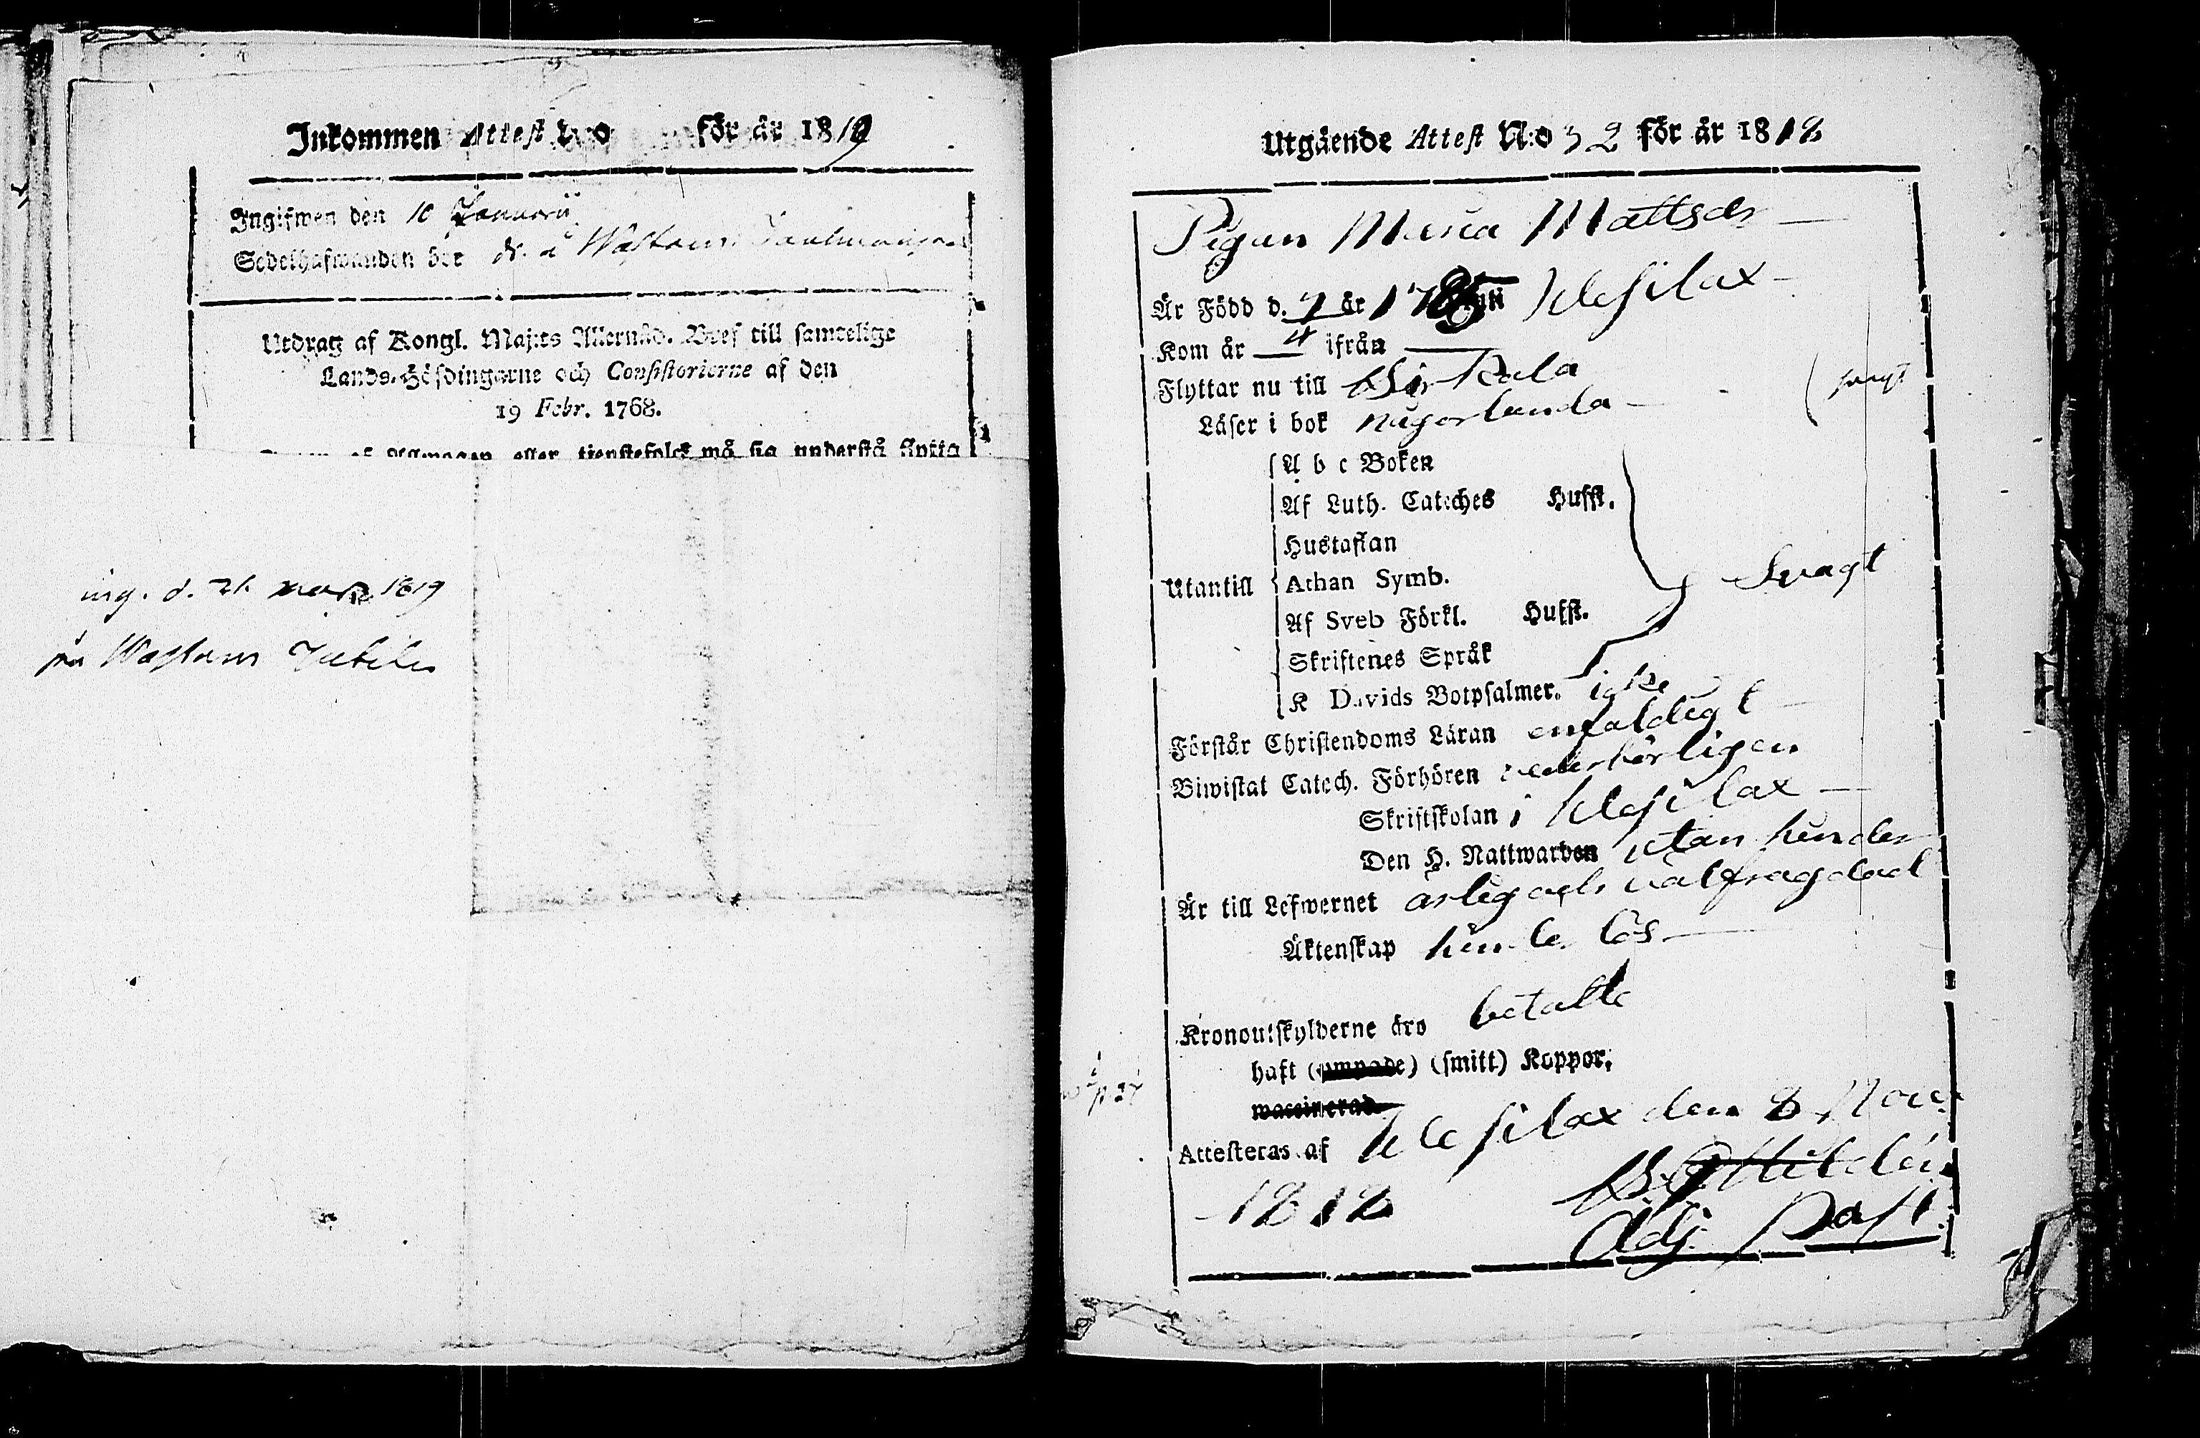 Inkommen Attest N:o för år 1819
Ingifwen den 10 Januarii
Sedelhafwanden bor
Utdrag af Kongl. Maj:ts Allernåd. Bref till samtelige
Lands-Höfdingarne och Consistorierne af den
19 Febr. 1768.
af Allmogen eller tjenstefolck må sig understå flytta
ing. d. 21. mars 1819
på
Utgående Attest N:o 32 för år 1818
Pigan Maria Mattsdr
Är Född d. 7 år 1785 i Weßilax
Kom år 4 ifrån
Flyttar nu till Birkala
Läser i bok någorlunda svagt
A b c Boken
Af Luth. Cateches Hufst.
Hustaflan
Utantill Athan Symb. Svagt
Af Sveb Förkl. Hufst.
Skriftenes Språk
K Davids Botpsalmer. icke
Förstår Christendoms Läran enfaldigt
Biwistat Catech. Förhören vederbörligen
Skriftskolan i Weßilax
Den H. Nattwarden utan hinder
Är till Lefwernet ärlig och välfrägdad
Äktenskap hinderlös
Kronoutskylderne äro betalte
haft (ympade) (smitt) Koppor.
waccinerad
Attesteras af Weßilax den 8 Nov.
1818
Adj. Past.